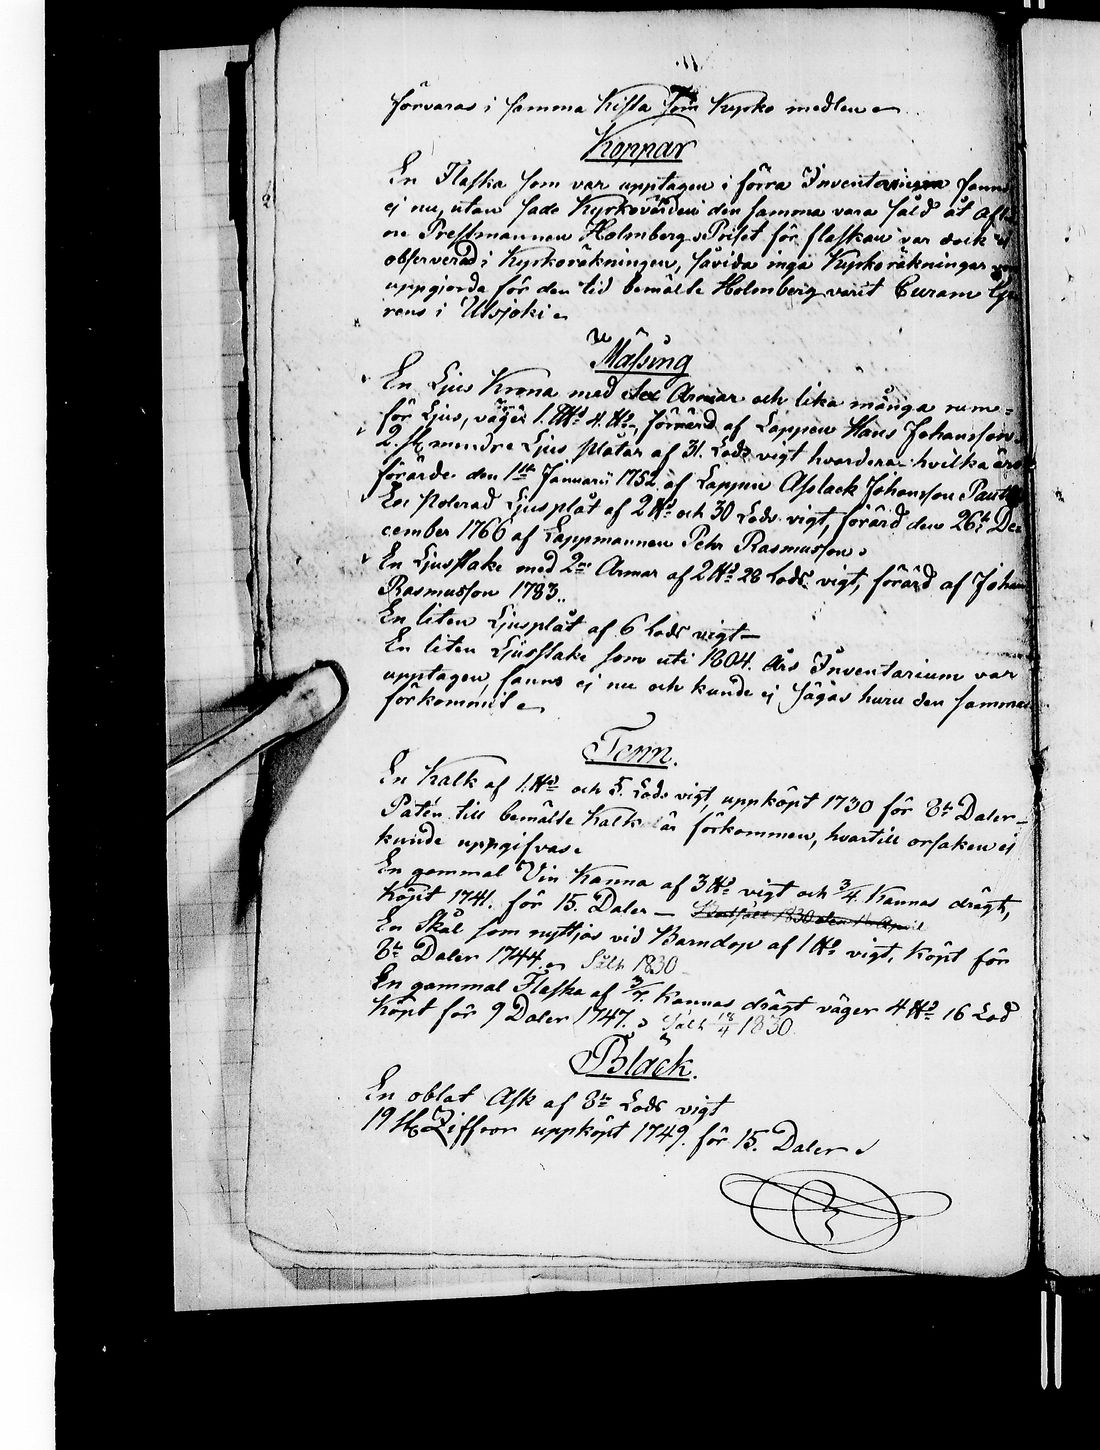 förvaras i samma Kista som Kyrko medlen
Koppar
En Flaska som var upptagen i förra Inventarium fanns
ej nu, utan sade Kyrkovärden den samma vara såld åt
ne Prestmannen Holmberg. Priset för flaskan var dock ej
observerad i Kyrkoräkningen, såvida inga Kyrkoräkningar
uppgjorde för den tid bemälte Holmberg varit Curam
rens i Utsjoki
Mässing
En Ljus Krona med Sex Armar och lika många rum
för Ljus, väger 1. L℔ 4. ℔, förärd af Lappen Hans Johansson
2. st mindre Ljus plåtar af 31. Lods vigt hvardera hvilka äro
förärde den 1ste Januarii 1752 af Lappen Aslack Johansson
En polerad Ljusplåt af 2 ℔ och 30 Lods vigt, förärd den 26te De-
cember 1766 af Lappmannen Pehr Rasmusson
En Ljusstake med 2ne Armar af 2 ℔ 28 Lods vigt, förärd af Johan
Rasmusson 1783.
En liten Ljusplåt af 6 Lods vigt
En liten Ljusstake som uti 1804. års Inventarium var
upptagen, fanns ej nu och kunde ej sägas huru den sammas
förkommit
Tenn.
En Kalk af 1. ℔ och 5. Lods vigt, uppköpt 1730 för 8ta Daler
Patén till bemälte Kalk är förkommen, hvartill orsaken ej
kunde uppgifvas
En gammal Vin Kanna af 3 ℔ vigt och 3/4 Kannas drägt,
Köpt 1741. för 15. Daler — Bortsålt 1830 den 18 April
En Skål som nyttjas vid Barndop af 1 ℔ vigt, Köpt för
8ta Daler 1744. Sålt 1830
En gammal Flaska af 3/4 Kannas drägt väger 4 ℔ 16 Lod
Köpt för 9 Daler 1747. Sålt 18/4 1830
Bläck.
En oblat Ask af 8ta Lods vigt
19 st Ziffror uppköpt 1749. för 15. Daler